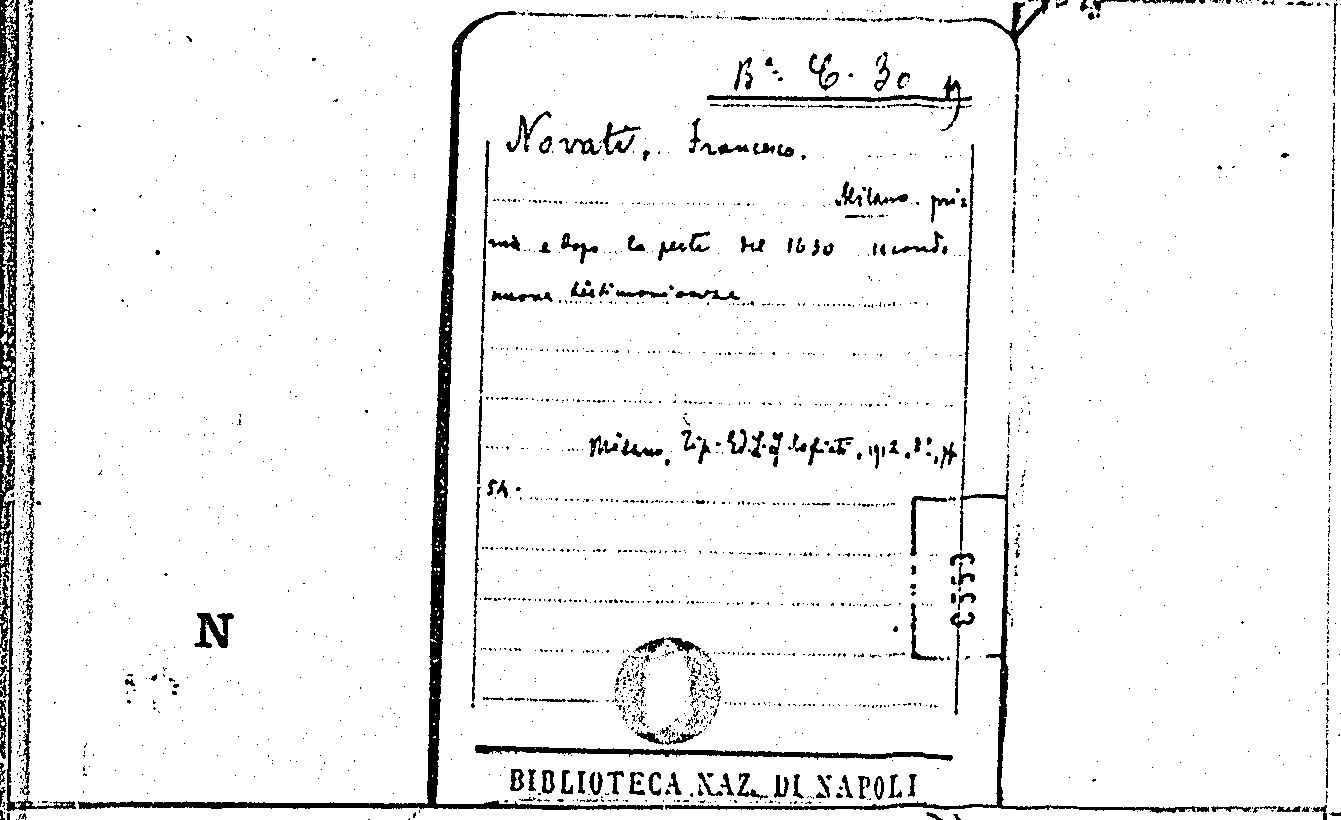 Bª. C. 30
Novati, Francesco.
Milano pri=
ma e dopo la peste del 1630 secondo
nuove testimonianze
Milano, Tip. Ed. L. F. Cogliati, 1912, 8º, pp
54.
N
BIBLIOTECA NAZ. DI NAPOLI